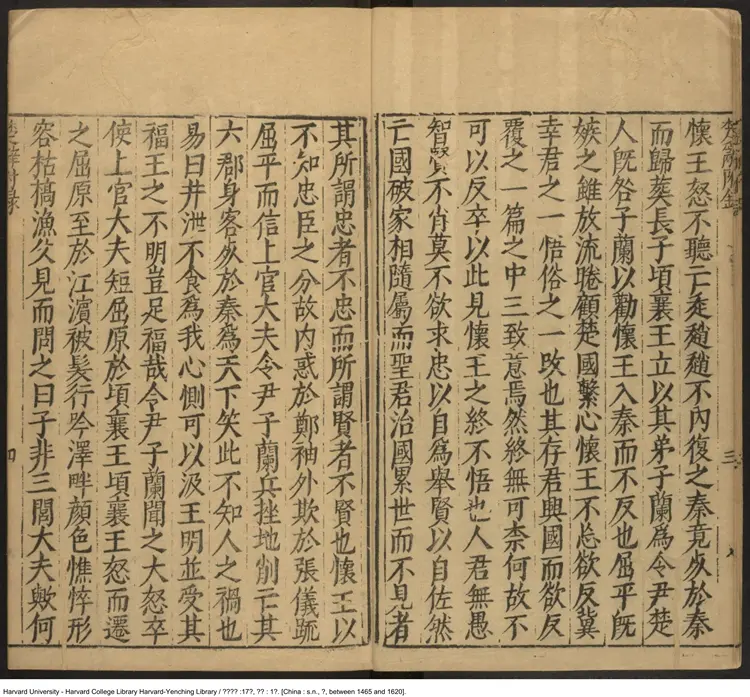 懷王怒不聽亡走趙趙不內復之秦竟死於秦
而歸葬長子頃襄王立以其弟子蘭為令尹楚
人旣咎子蘭以勸懷王入秦而不反也屈平旣
嫉之雖放流睠顧楚國繫心懷王不忘欲反冀
幸君之一悟俗之一攺也其存君興國而欲反
覆之一篇之中三致意焉然終無可柰何故不
可以反卒以此見懷王之終不悟也人君無愚
智賢不肖莫不欲求忠以自爲舉賢以自佐然
亡國破家相隨屬而聖君治國累世而不見者
其所謂忠者不忠而所謂賢者不賢也懷王以
不知忠臣之分故內惑於鄭袖外欺於張儀踈
屈平而信上官大夫令尹子蘭兵挫地削亡其
六郡身客死於秦爲天下笑此不知人之禍也
易曰井泄不食爲我心惻可以汲王明並受其
福王之不明豈足福哉令尹子蘭聞之大怒卒
使上官大夫短屈原於頃襄王頃襄王怒而遷
之屈原至於江濱被髮行吟澤畔顏色憔悴形
容枯槁漁父見而問之曰子非三閭大夫歟何
楚辭附錄
三
楚辭附錄
四
Harvard University - Harvard College Library Harvard-Yenching Library / ???? :17?, ?? : 1?. [China : s.n., ?, between 1465 and 1620].